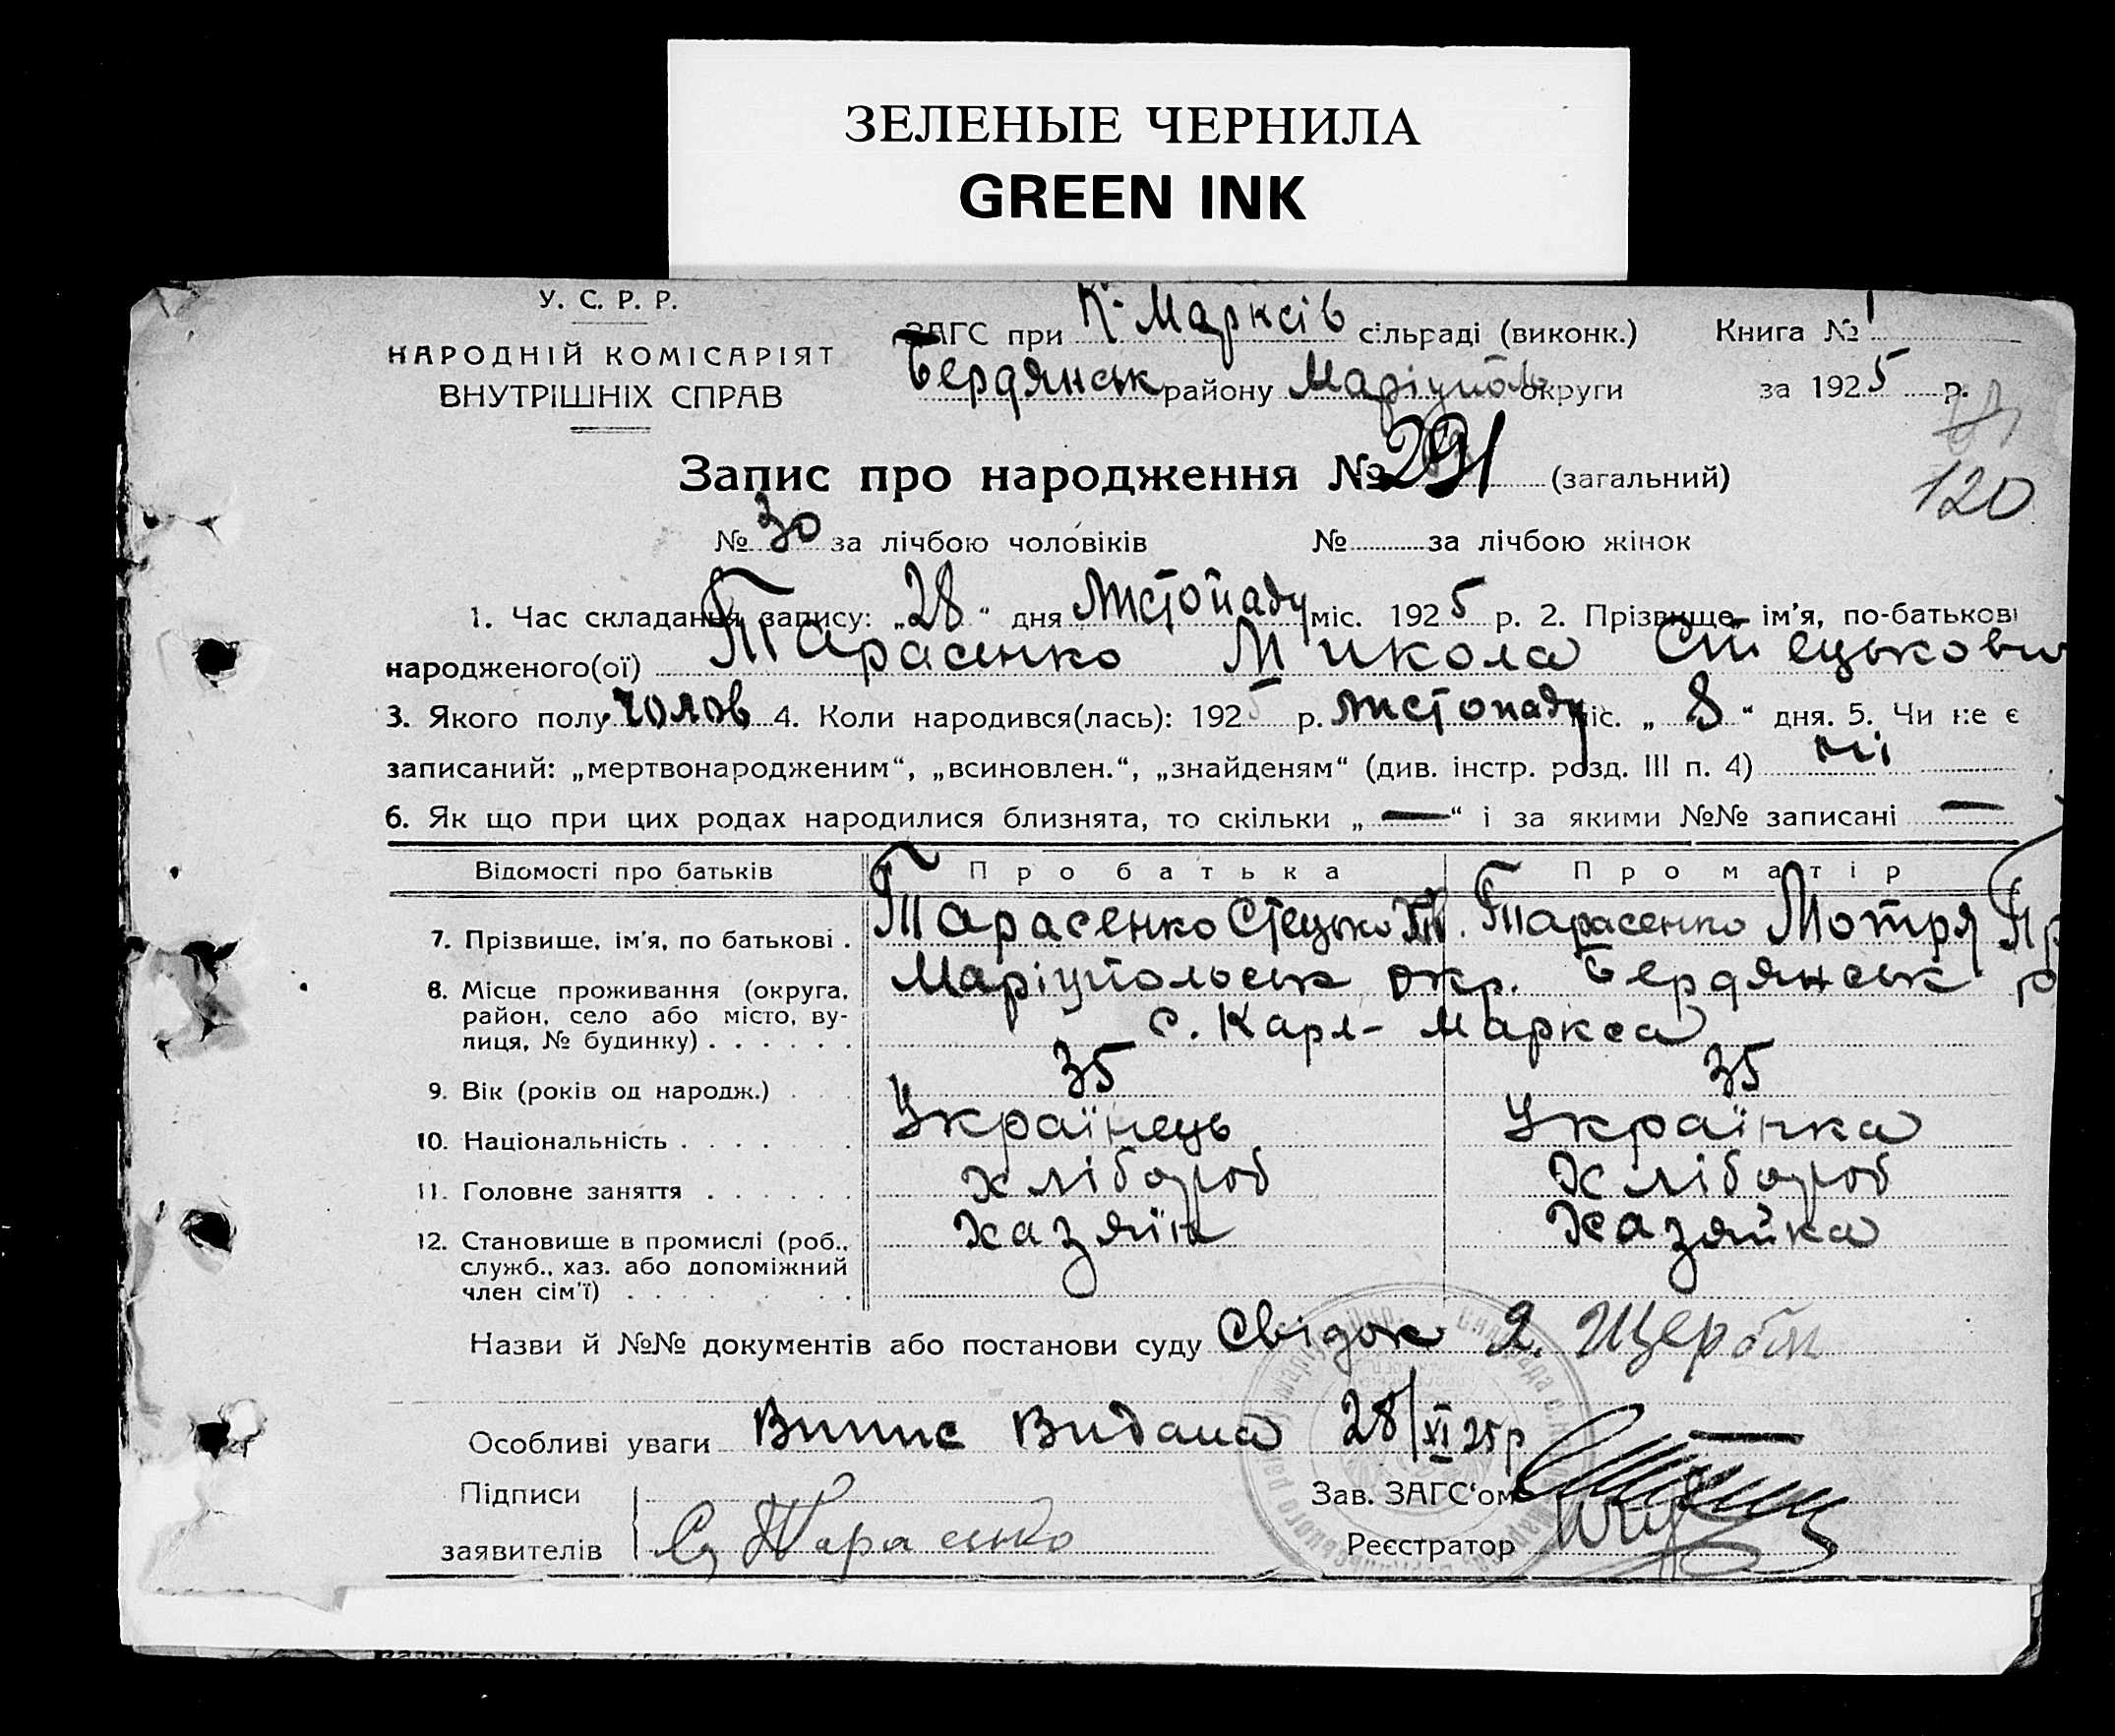 ЗЕЛЕНЫЕ ЧЕРНИЛА
GREEN INK
У. С. Р. Р.
НАРОДНІЙ КОМІСАРІЯТ
ВНУТРІШНІХ СПРАВ
ЗАГС при К-Марксів сільраді (виконк.) Книга № 1
Бердянськ району Маріуполь округи за 1925 р.
120
Запис про народження № 291 (загальний)
№ 30 за лічбою чоловіків № за лічбою жінок
1. Час складання запису: „28“ дня листопаду міс. 1925 р. 2. Прізвище, ім'я, по-батькові
народженого(ої) Тарасенко Микола Стецькови
3. Якого полу чолов 4. Коли народився(лась): 1925 р. листопаду міс. „8“ дня. 5. Чи не є
записаний: „мертвонародженим“, „всиновлен.“, „знайденям“ (див. інстр. розд. III п. 4) ні
6. Як що при цих родах народилися близнята, то скільки „—“ і за якими №№ записані —
Відомості про батьків Про батька Про матір
7. Прізвище, ім'я, по батькові . Тарасенко Стецько Тарасенко Мотря
8. Місце проживання (округа, Маріупольськ окр. Бердянськ р
район, село або місто, ву-
лиця, № будинку) . . . . . . с. Карл-Маркса
9. Вік (років од народж.) . . . 35 35
10. Національність . . . . . Українець Українка
11. Головне заняття . . . . . . Хлібороб Хлібороб
12. Становище в промислі (роб., хазяїн Хазяйка
служб., хаз. або допоміжний
член сім'ї) . . . . . . . .
Назви й №№ документів або постанови суду Свідок Я. Щерб
Особливі уваги Випис Видана 28/XI 25р —
Підписи Зав. ЗАГС'ом
заявителів Тарасенко Реєстратор